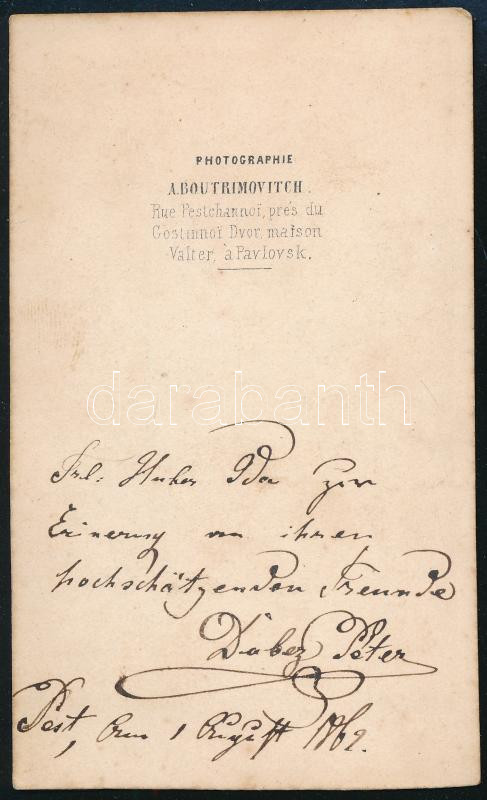 PHOTOGRAPHIE
A.BOUTRIMOVITCH.
Rue Pestchannoï, prés du
Gostinnoï Dvor, maison
Valter, à Pavlovsk.
darabanth
Frl: Huber Ida zur
Erinerung an ihren
hochschätzenden Freunde
Däbez Peter
Pest, am 1 August 1869.